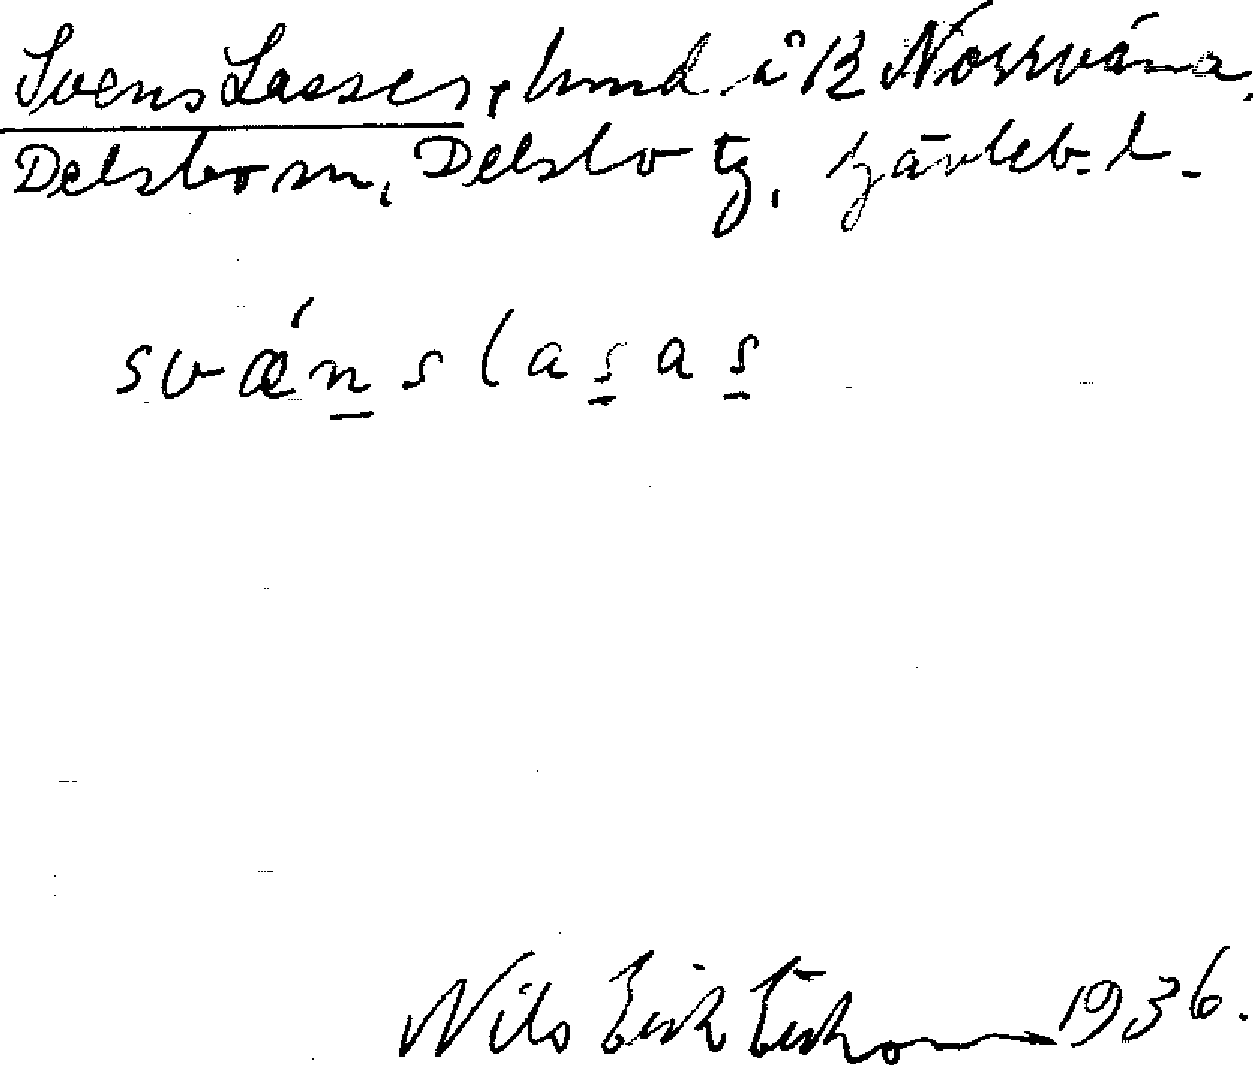 Svens Lasses, hmd i B Norrväna,
Delsbo sn, Delsbo tg, Gävleb. l.
svǽn̲slas̲as̲
Nils Erik Eriksson 1936.